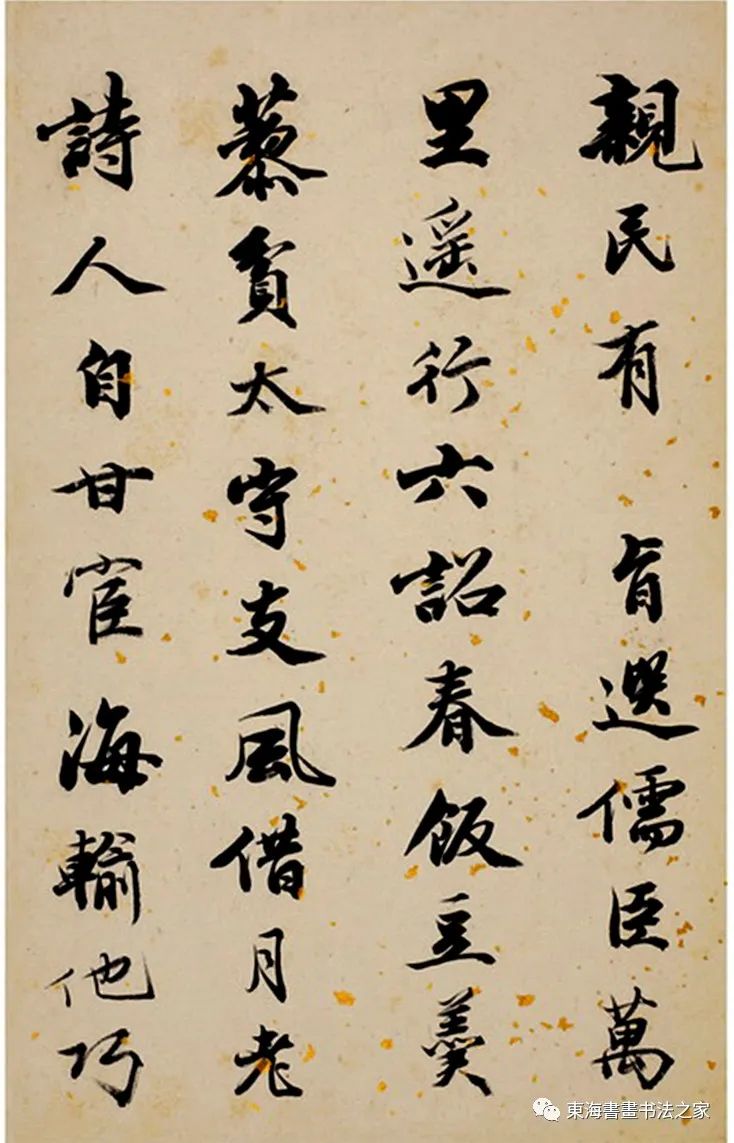 親民有 旨選儒臣萬
里遥行六詔春飯豆羹
藜貧太守支風借月老
詩人自甘宦海輸他巧
東海書畫书法之家